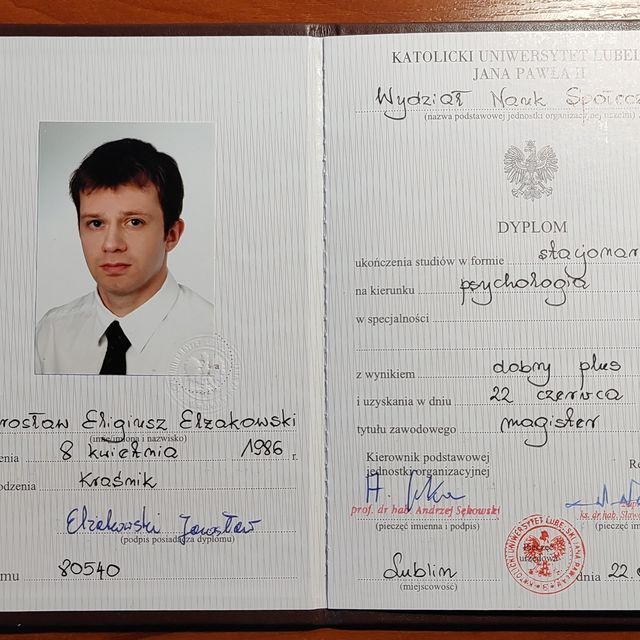 rosław Eligiusz Elżakowski
(imię/imiona i nazwisko)
enia 8 kwietnia 1986 r.
odzenia Kraśnik
Elżakowski Jarosław
(podpis posiadacza dyplomu)
mu 80540
KATOLICKI UNIWERSYTET LUBEL
JANA PAWŁA II
Wydział Nauk Społecz
(nazwa podstawowej jednostki organizacyjnej uczelni)
DYPLOM
ukończenia studiów w formie stacjonar
na kierunku psychologia
w specjalności
z wynikiem dobry plus
i uzyskania w dniu 22 czerwca
tytułu zawodowego magister
Kierownik podstawowej
jednostki organizacyjnej
Re
prof. dr hab. Andrzej Sękowski
ks. dr hab. Sław
(pieczęć imienna i podpis)
(pieczęć im
KATOLICKI UNIWERSYTET LUBELSKI JANA PAWŁA II
urzędowa
Lublin
(miejscowość)
dnia 22.